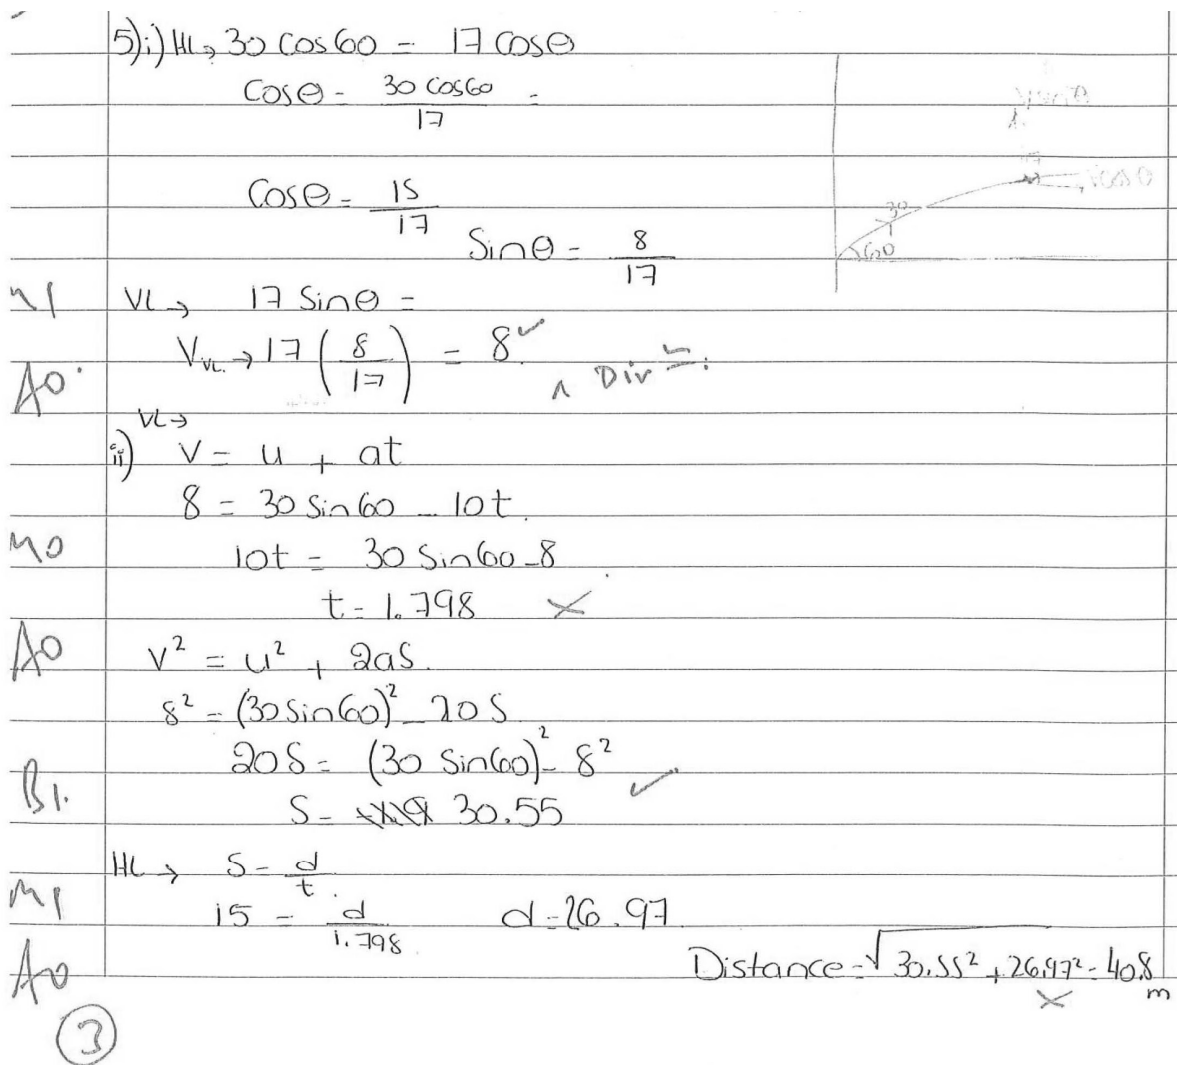 5)i) HL→ 30 cos60 = 17 cosθ
cosθ = 30 cos60 / 17 =
cosθ = 15/17
Sinθ = 8/17
30
60
M1 VL→ 17 Sinθ =
A0 V VL→ 17 (8/17) = 8 ✓ ^ Div
VL→
ii) V = u + at
8 = 30 sin60 - 10t
M0 10t = 30 sin60 - 8
t = 1.798 ×
A0 V² = u² + 2as.
8² = (30sin60)² - 20S
20S = (30 sin60)² - 8²
B1. S = 30.55 ✓
HL→ S = d/t.
M1 15 = d/1.798 d = 26.97
A0 Distance = √30.55² + 26.97² = 40.8 m ×
3